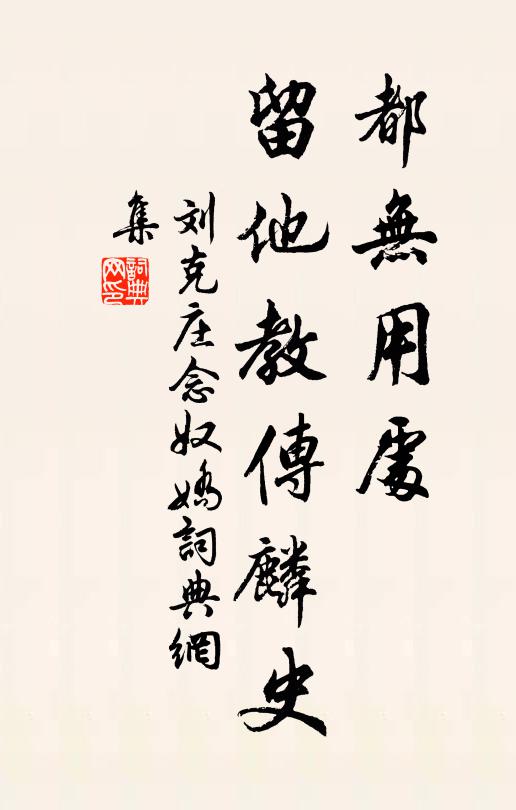 都無用處
留他教傳麟史
刘克庄念奴嬌詞典網
集
詞典
网印